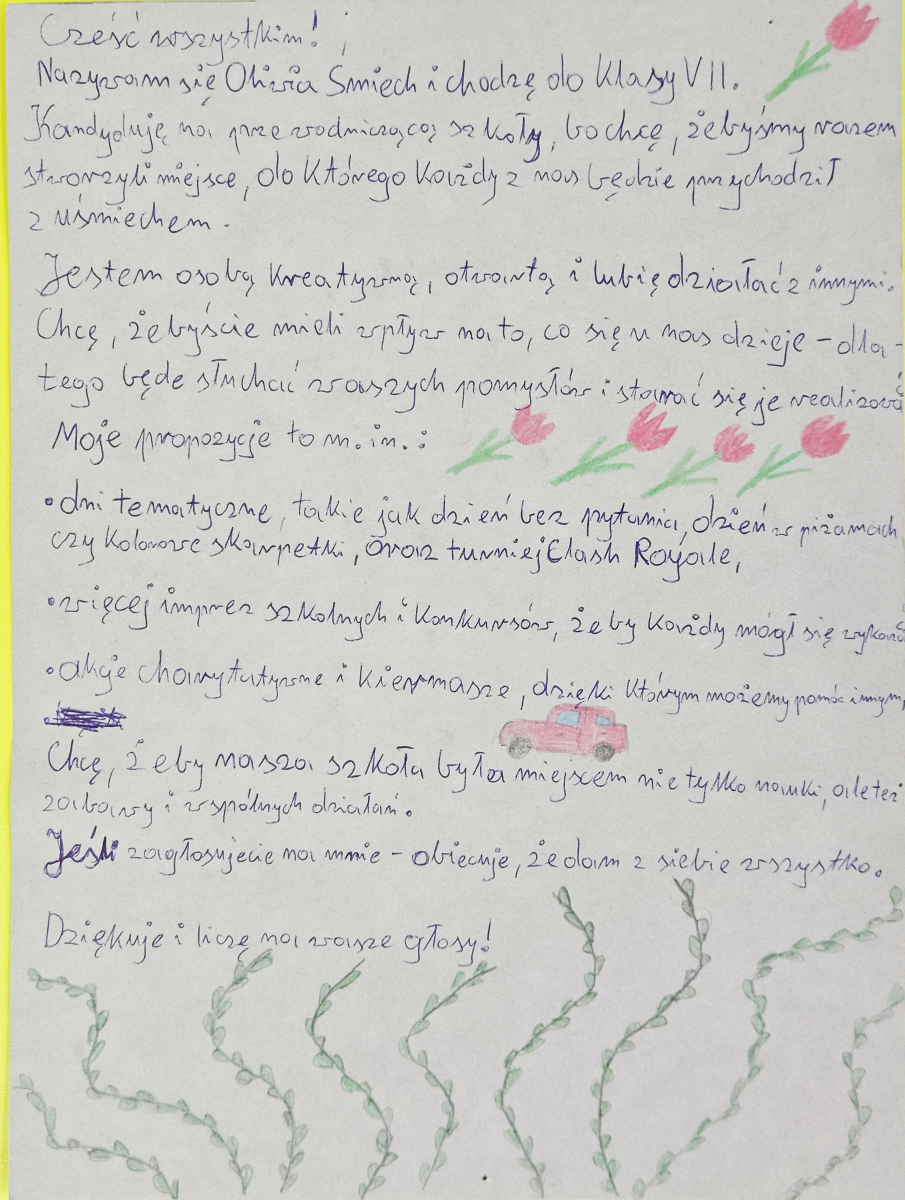 Cześć wszystkim!
Nazywam się Oliwia Śmiech i chodzę do klasy VII.
Kandyduję na przewodniczącą szkoły, bo chcę, żebyśmy razem
stworzyli miejsce, do którego każdy z nas będzie przychodził
z uśmiechem.
Jestem osobą kreatywną, otwartą i lubię działać z innymi.
Chcę, żebyście mieli wpływ na to, co się u nas dzieje - dla-
tego będe słuchać waszych pomysłów i starać się je realizować
Moje propozycje to m.in.:
• dni tematyczne, takie jak dzień bez pytania, dzień w piżamach
czy kolorowe skarpetki, oraz turniej Clash Royale,
• więcej imprez szkolnych i konkursów, żeby każdy mógł się wykazać
• akcje charytatywne i kiermasze, dzięki którym możemy pomóc innym,
Chcę, żeby nasza szkoła była miejscem nie tylko nauki, ale też
zabawy i wspólnych działań.
Jeśli zagłosujecie na mnie - obiecuje, że dam z siebie wszystko.
Dziękuje i liczę na wasze głosy!